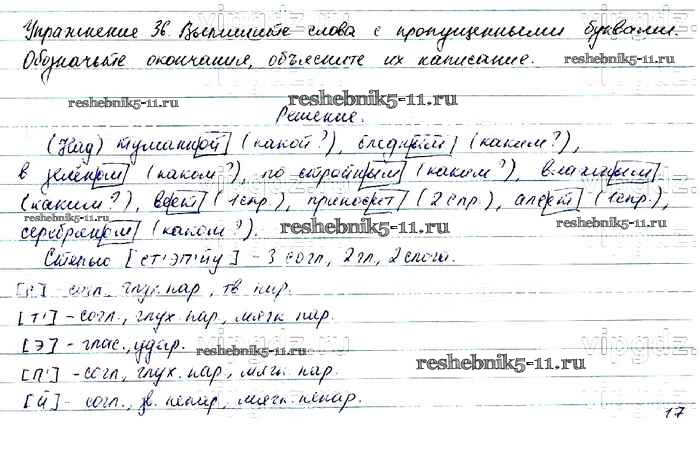 Упражнение 36. Выпишите слова с пропущенными буквами.
Обозначьте окончания, объясните их написание.
reshebnik5-11.ru
reshebnik5-11.ru
reshebnik5-11.ru
Решение.
(Над) туманной (какой?), бледным (каким?),
в зелёном (каком?), по стройным (каким?), влажным
(каким?), веет (1 спр.), приносит (2 спр.), алеет (1 спр.),
серебряном (каком?).
reshebnik5-11.ru
reshebnik5-11.ru
Степью [ст'эп'йу] - 3 согл, 2 гл, 2 слога.
[с] - согл, глух. пар, тв. пар.
[т'] - согл., глух. пар, мягк. пар.
[э] - глас., удар.
reshebnik5-11.ru
reshebnik5-11.ru
[п'] - согл, глух. пар, мягк. пар.
[й] - согл., зв. непар, мягк. непар.
17